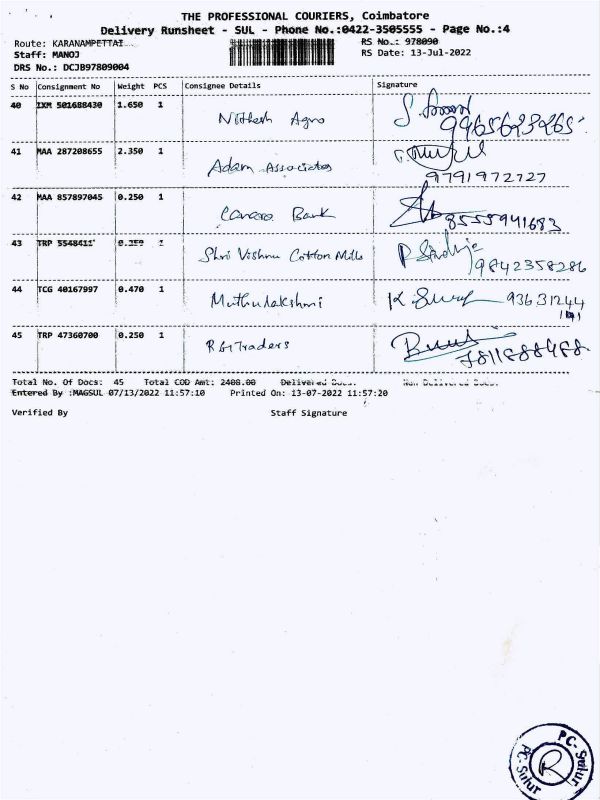 THE PROFESSIONAL COURIERS, Coimbatore
Delivery Runsheet - SUL - Phone No.:0422-3505555 - Page No.:4
Route: KARANAMPETTAI
RS No.: 978090
Staff: MANOJ
RS Date: 13-Jul-2022
DRS No.: DCJB97809004
S No Consignment No Weight PCS Consignee Details Signature
40 IXM 501688430 1.650 1 Nithesh Agro
9965623265
41 MAA 287208655 2.350 1 Adam Associates
9791972727
42 MAA 857897045 0.250 1 Canara Bank
8555941683
43 TRP 5548411 1 Shri Vishnu Cotton Mills
9842358286
44 TCG 40167997 0.470 1 Muthulakshmi K. 93631244
45 TRP 47360700 0.250 1 Traders
Total No. Of Docs: 45 Total COD Amt: 2408.00 Delivered Docs: Non Delivered Docs:
Entered By :MAGSUL 07/13/2022 11:57:10 Printed On: 13-07-2022 11:57:20
Verified By Staff Signature
PC-Sulur
R
PC-Sulur